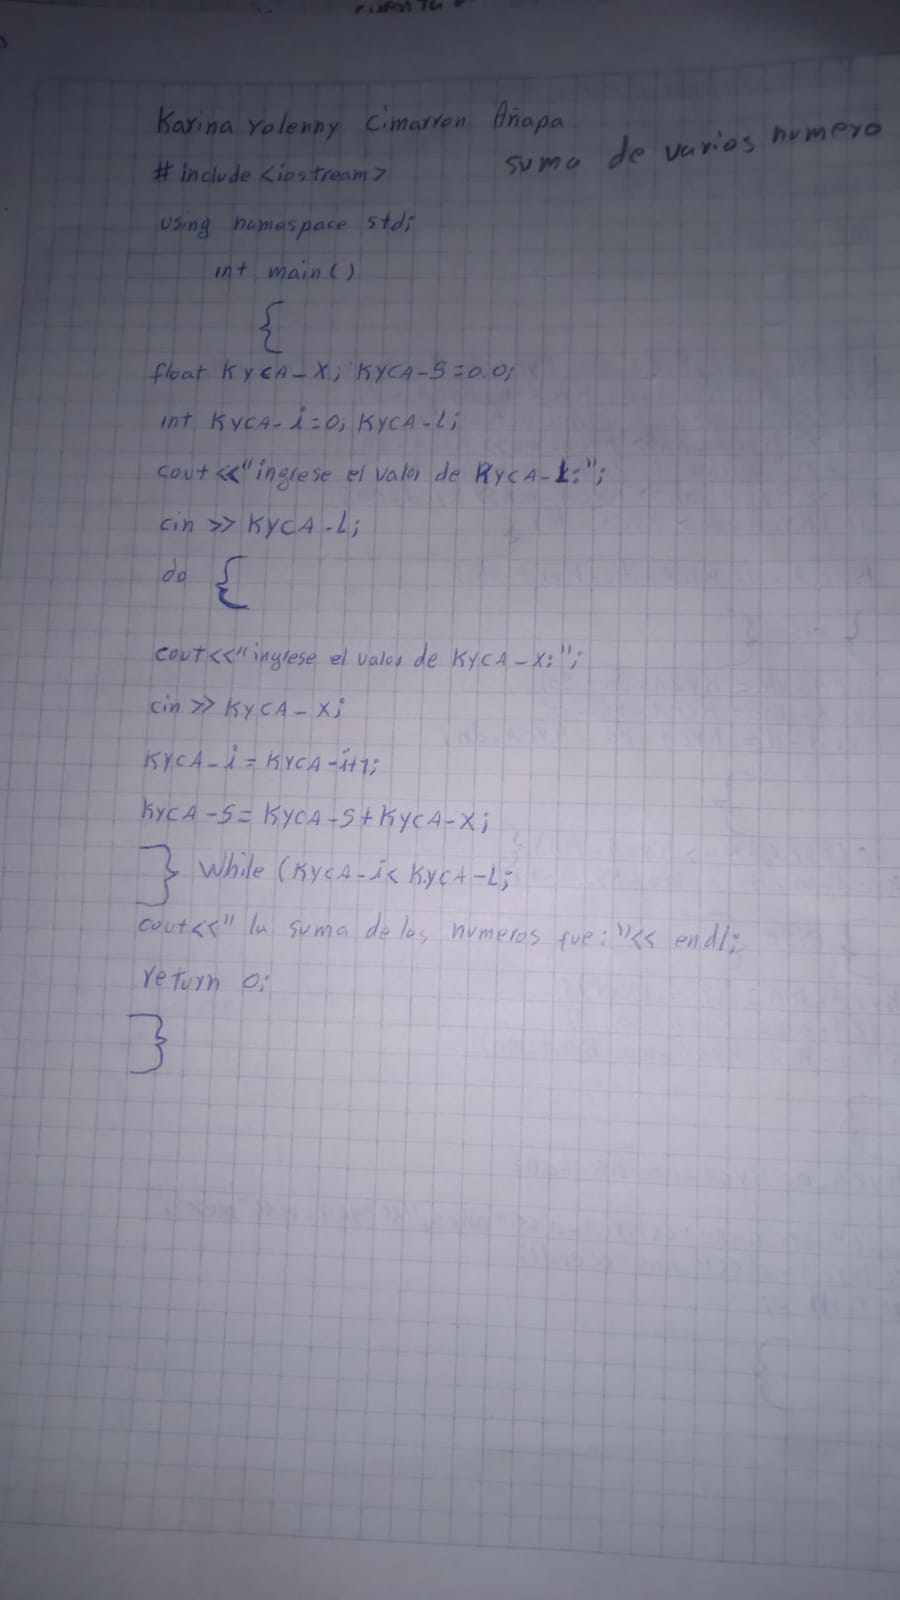 Karina Yolenny Cimarron Añapa
suma de varios numero
# include <iostream>
using namespace std;
int main()
{
float KYCA-X; KYCA-S=0.0;
int KYCA-i=0; KYCA-L;
cout<<"ingrese el valor de KYCA-L:";
cin >> KYCA-L;
do {
cout<<"ingrese el valor de KYCA-X:";
cin >> KYCA-X;
KYCA-i = KYCA-i+1;
KYCA-S= KYCA-S+KYCA-X;
} while (KYCA-i< KYCA-L;
cout<<" la suma de los numeros fue: "<< endl;
return 0;
}